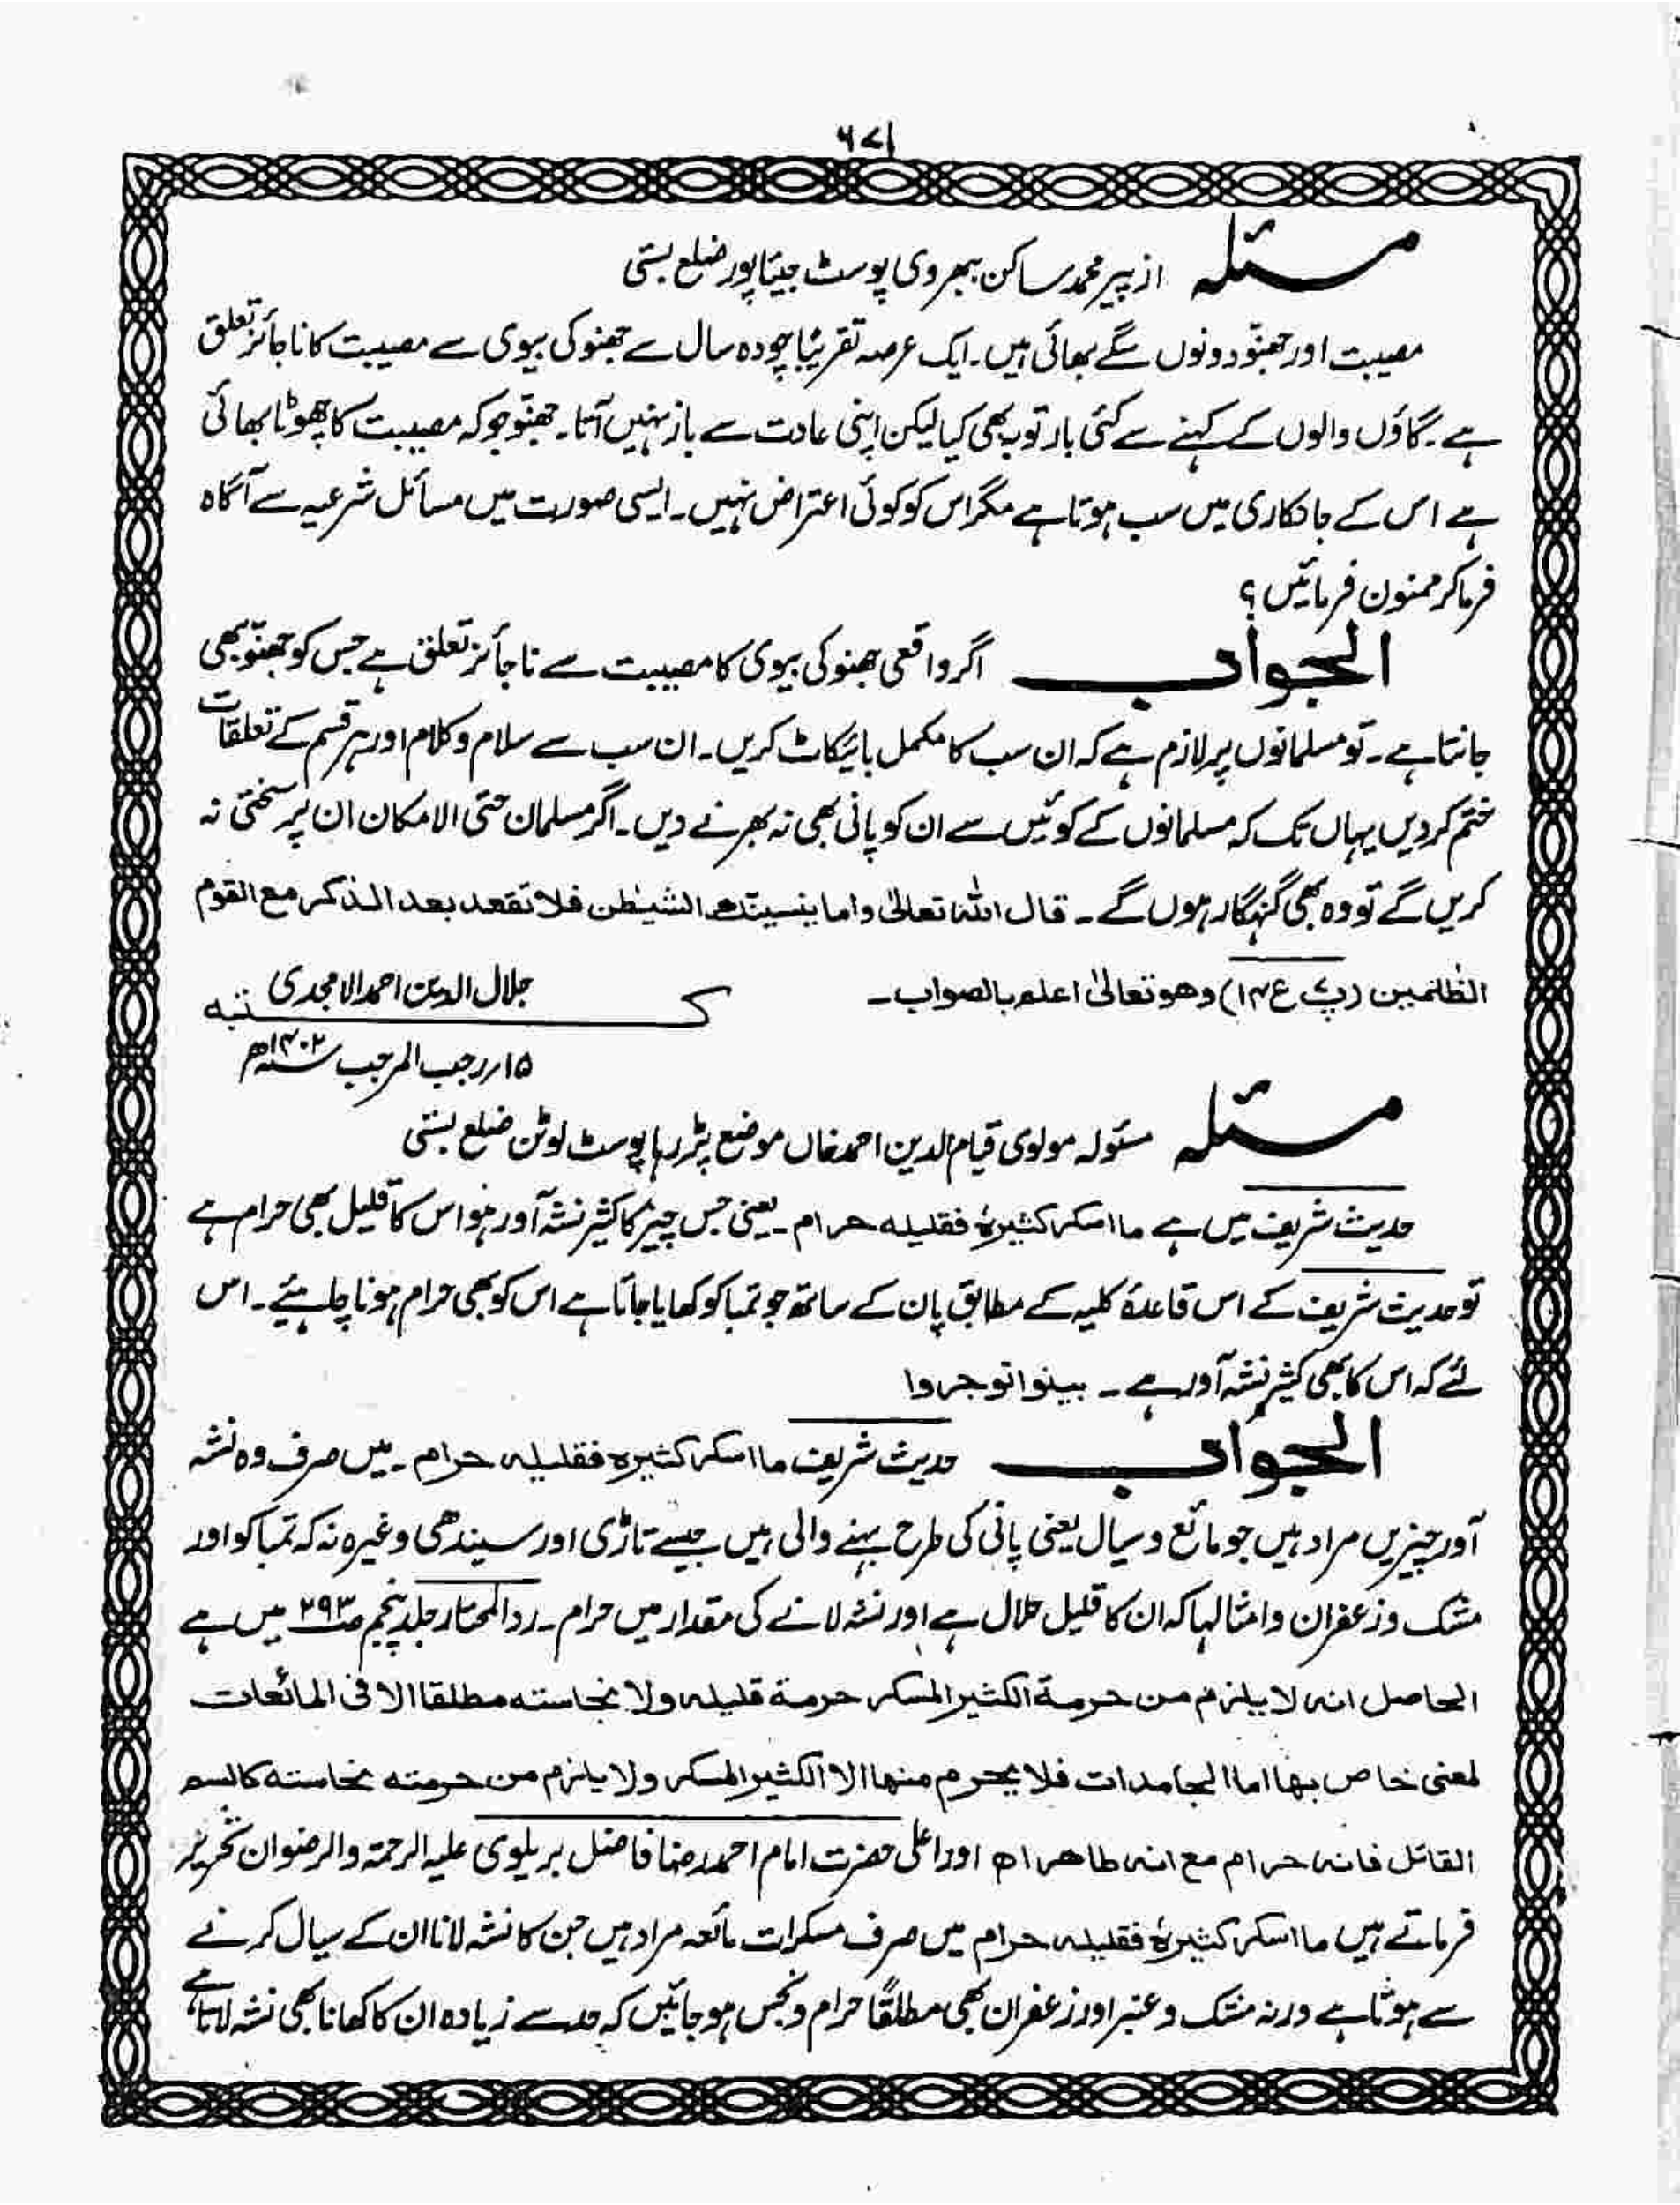 ۶۷۱
مسئلہ از پیر محمد ساکن بھروی پوسٹ جیتاپور ضلع بستی
مصیبت اور جھنّو دونوں سگے بھائی ہیں۔ ایک عرصہ تقریبًا چودہ سال سے جھنو کی بیوی سے مصیبت کا ناجائز تعلق
ہے۔ گاؤں والوں کے کہنے سے کئی بار توبہ بھی کیا لیکن اپنی عادت سے باز نہیں آتا۔ جھنّو جو کہ مصیبت کا چھوٹا بھائی
ہے اس کے جانکاری میں سب ہوتا ہے مگر اس کو کوئی اعتراض نہیں۔ ایسی صورت میں مسائل شرعیہ سے آگاہ
فرما کر ممنون فرمائیں؟
الجواب اگر واقعی جھنو کی بیوی کا مصیبت سے ناجائز تعلق ہے جس کو جھنّو بھی
جانتا ہے۔ تو مسلمانوں پر لازم ہے کہ ان سب کا مکمل بائیکاٹ کریں۔ ان سب سے سلام و کلام اور ہر قسم کے تعلقات
ختم کردیں یہاں تک کہ مسلمانوں کے کوئیں سے ان کو پانی بھی نہ بھرنے دیں۔ اگر مسلمان حتی الامکان ان پر سختی نہ
کریں گے تو وہ بھی گنہگار ہوں گے۔ قال اللہ تعالیٰ واما ینسینك الشیطٰن فلا تقعد بعد الذکر مع القوم
الظٰلمین (پ۷ ع۱۴) وھو تعالیٰ اعلم بالصواب۔
جلال الدین احمد الامجدی
کتبہ
۱۵؍ رجب المرجب ۱۴۰۲ھ
مسئلہ مسئولہ مولوی قیام الدین احمد خاں موضع پڑرہا پوسٹ لوٹن ضلع بستی
حدیث شریف میں ہے ما اسکر کثیرہٗ فقلیلہ حرام۔ یعنی جس چیز کا کثیر نشہ آور ہو اس کا قلیل بھی حرام ہے
تو حدیث شریف کے اس قاعدۂ کلیہ کے مطابق پان کے ساتھ جو تمباکو کھایا جاتا ہے اس کو بھی حرام ہونا چاہئیے۔ اس
لئے کہ اس کا بھی کثیر نشہ آور ہے۔ بینوا توجروا
الجواب حدیث شریف ما اسکر کثیرہ فقلیلہ حرام۔ میں صرف وہ نشہ
آور چیزیں مراد ہیں جو مائع و سیال یعنی پانی کی طرح بہنے والی ہیں جیسے تاڑی اور سیندھی وغیرہ نہ کہ تمباکو اور
مشک و زعفران و امثالہا کہ ان کا قلیل حلال ہے اور نشہ لانے کی مقدار میں حرام۔ رد المحتار جلد پنجم ص۲۹۳ میں ہے
الحاصل انہ لا یلزم من حرمة الکثیر المسکر حرمة قلیلہ ولا نجاستہ مطلقا الا فی المائعات
لمعنی خاص بھا اما الجامدات فلا یحرم منھا الا الکثیر المسکر ولا یلزم من حرمتہ نجاستہ کالسم
القاتل فانہ حرام مع انہ طاھر اھ اور اعلیٰ حضرت امام احمد رضا فاضل بریلوی علیہ الرحمۃ والرضوان تحریر
فرماتے ہیں ما اسکر کثیرہٗ فقلیلہ حرام میں صرف مسکرات مائعہ مراد ہیں جن کا نشہ لانا ان کے سیال کرنے
سے ہوتا ہے ورنہ مشک و عنبر اور زعفران بھی مطلقًا حرام و نجس ہوجائیں کہ حد سے زیادہ ان کا کھانا بھی نشہ لاتا ہے